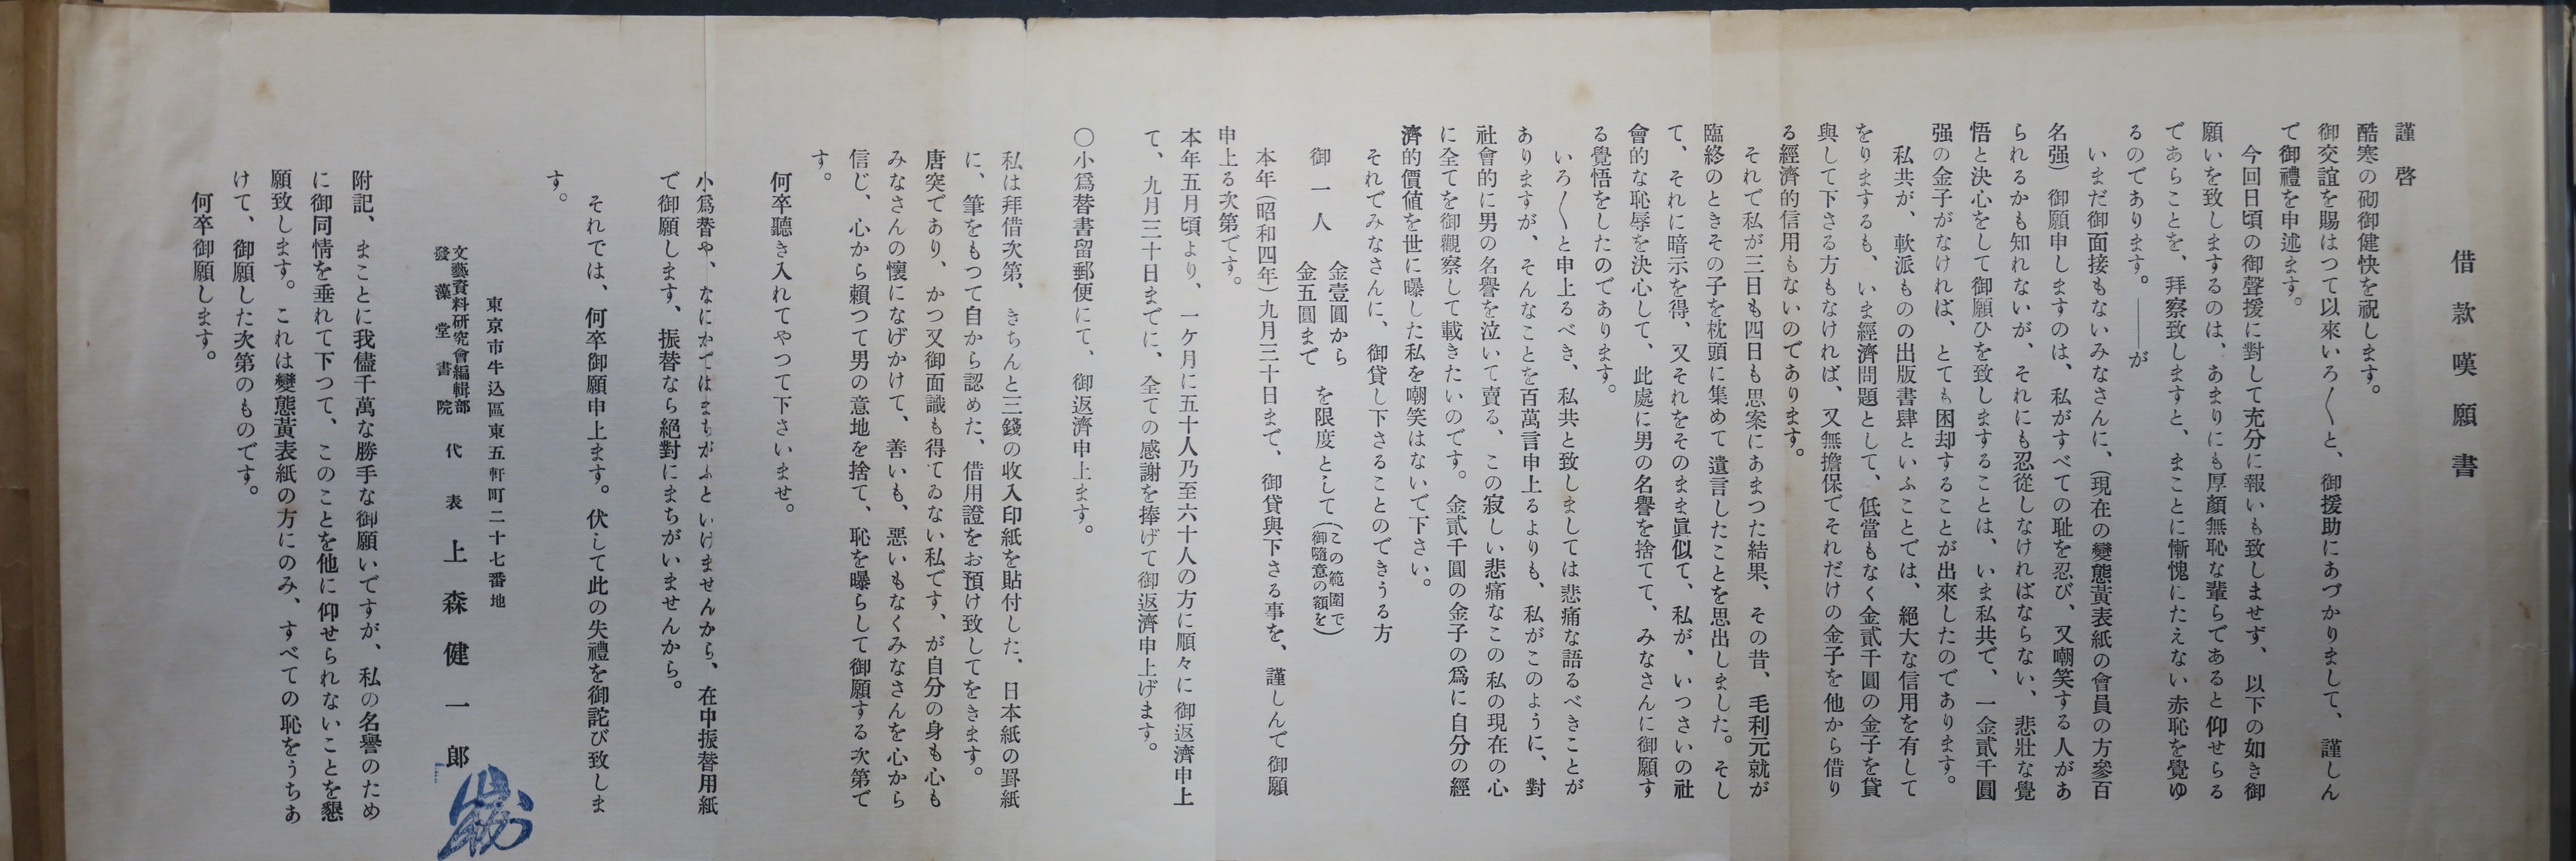 借款嘆願書
謹啓
酷寒の砌御健快を祝します。
御交誼を賜はつて以來いろ〱と、御援助にあづかりまして、謹しん
で御禮を申述ます。
今回日頃の御聲援に對して充分に報いも致しませず、以下の如き御
願いを致しまするのは、あまりにも厚顏無恥な輩らであると仰せらる
であらことを、拜察致しますと、まことに慚愧にたえない赤恥を覺ゆ
るのであります。――が
いまだ御面接もないみなさんに、(現在の變態黄表紙の會員の方參百
名强)御願申しますのは、私がすべての耻を忍び、又嘲笑する人があ
られるかも知れないが、それにも忍從しなければならない、悲壯な覺
悟と決心をして御願ひを致しますることは、いま私共で、一金貳千圓
强の金子がなければ、とても困却することが出來したのであります。
私共が、軟派ものの出版書肆といふことでは、絕大な信用を有して
をりまするも、いま經濟問題として、低當もなく金貳千圓の金子を貸
與して下さる方もなければ、又無擔保でそれだけの金子を他から借り
る經濟的信用もないのであります。
それで私が三日も四日も思案にあまつた結果、その昔、毛利元就が
臨終のときその子を枕頭に集めて遺言したことを思出しました。そし
て、それに暗示を得、又それをそのまま眞似て、私が、いつさいの社
會的な恥辱を決心して、此處に男の名譽を捨てて、みなさんに御願す
る覺悟をしたのであります。
いろ〱と申上るべき、私共と致しましては悲痛な語るべきことが
ありますが、そんなことを百萬言申上るよりも、私がこのように、對
社會的に男の名譽を泣いて賣る、この寂しい悲痛なこの私の現在の心
に全てを御觀察して載きたいのです。金貳千圓の金子の爲に自分の經
濟的價値を世に曝した私を嘲笑はないで下さい。
それでみなさんに、御貸し下さることのできうる方
御一人 金壹圓から
金五圓まで を限度として(この範圍で
御隨意の額を)
本年(昭和四年)九月三十日まで、御貸與下さる事を、謹しんで御願
申上る次第です。
本年五月頃より、一ケ月に五十人乃至六十人の方に順々に御返濟申上
て、九月三十日までに、全ての感謝を捧げて御返濟申上げます。
〇小爲替書留郵便にて、御返濟申上ます。
私は拜借次第、きちんと三錢の收入印紙を貼付した、日本紙の罫紙
に、筆をもつて自から認めた、借用證をお預け致してをきます。
唐突であり、かつ又御面識も得てゐない私です、が自分の身も心も
みなさんの懷になげかけて、善いも、悪いもなくみなさんを心から
信じ、心から賴つて男の意地を捨て、恥を曝らして御願する次第で
す。
何卒聽き入れてやつて下さいませ。
小爲替や、なにかではまちがふといけませんから、在中振替用紙
で御願します、振替なら絕對にまちがいませんから。
それでは、何卒御願申上ます。伏して此の失禮を御詑び致しま
す。
東京市牛込區東五軒町二十七番地
文藝資料研究會編輯部
發藻堂書院
代表 上森健一郎
附記、まことに我儘千萬な勝手な御願いですが、私の名譽のため
に御同情を垂れて下つて、このことを他に仰せられないことを懇
願致します。これは變態黄表紙の方にのみ、すべての恥をうちあ
けて、御願した次第のものです。
何卒御願します。